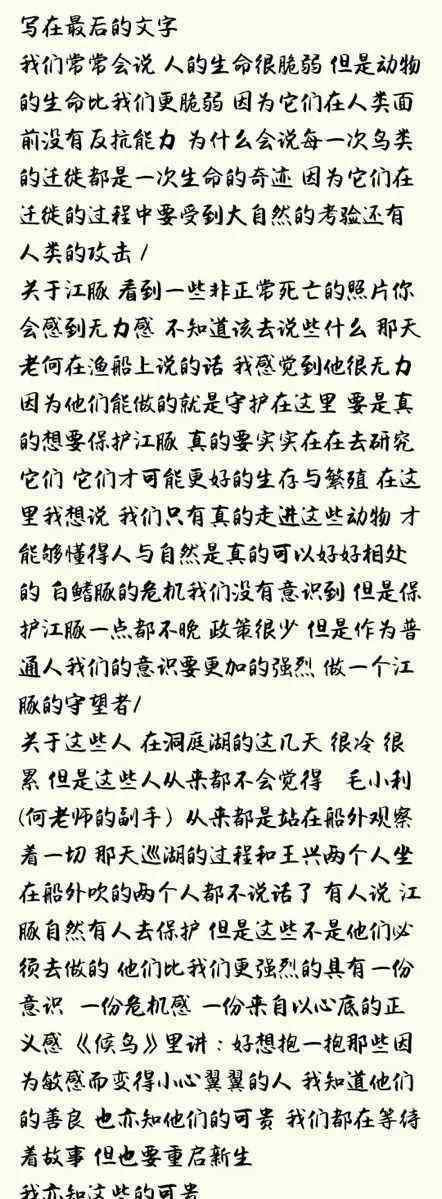 写在最后的文字
我们常常会说 人的生命很脆弱 但是动物
的生命比我们更脆弱 因为它们在人类面
前没有反抗能力 为什么会说每一次鸟类
的迁徙都是一次生命的奇迹 因为它们在
迁徙的过程中要受到大自然的考验还有
人类的攻击/
关于江豚 看到一些非正常死亡的照片你
会感到无力感 不知道该去说些什么 那天
老何在渔船上说的话 我感觉到他很无力
因为他们能做的就是守护在这里 要是真
的想要保护江豚 真的要实实在在去研究
它们 它们才可能更好的生存与繁殖 在这
里我想说 我们只有真的走进这些动物 才
能够懂得人与自然是真的可以好好相处
的 白鳍豚的危机我们没有意识到 但是保
护江豚一点都不晚 政策很少 但是作为普
通人我们的意识要更加的强烈 做一个江
豚的守望者/
关于这些人 在洞庭湖的这几天 很冷 很
累 但是这些人从来都不会觉得 毛小利
(何老师的副手) 从来都是站在船外观察
着一切 那天巡湖的过程和王兴两个人坐
在船外吹的两个人都不说话了 有人说 江
豚自然有人去保护 但是这些不是他们必
须去做的 他们比我们更强烈的具有一份
意识 一份危机感 一份来自以心底的正
义感 《候鸟》里讲：好想抱一抱那些因
为敏感而变得小心翼翼的人 我知道他们
的善良 也亦知他们的可贵 我们都在等待
着故事 但也要重启新生
我亦知这些的可贵